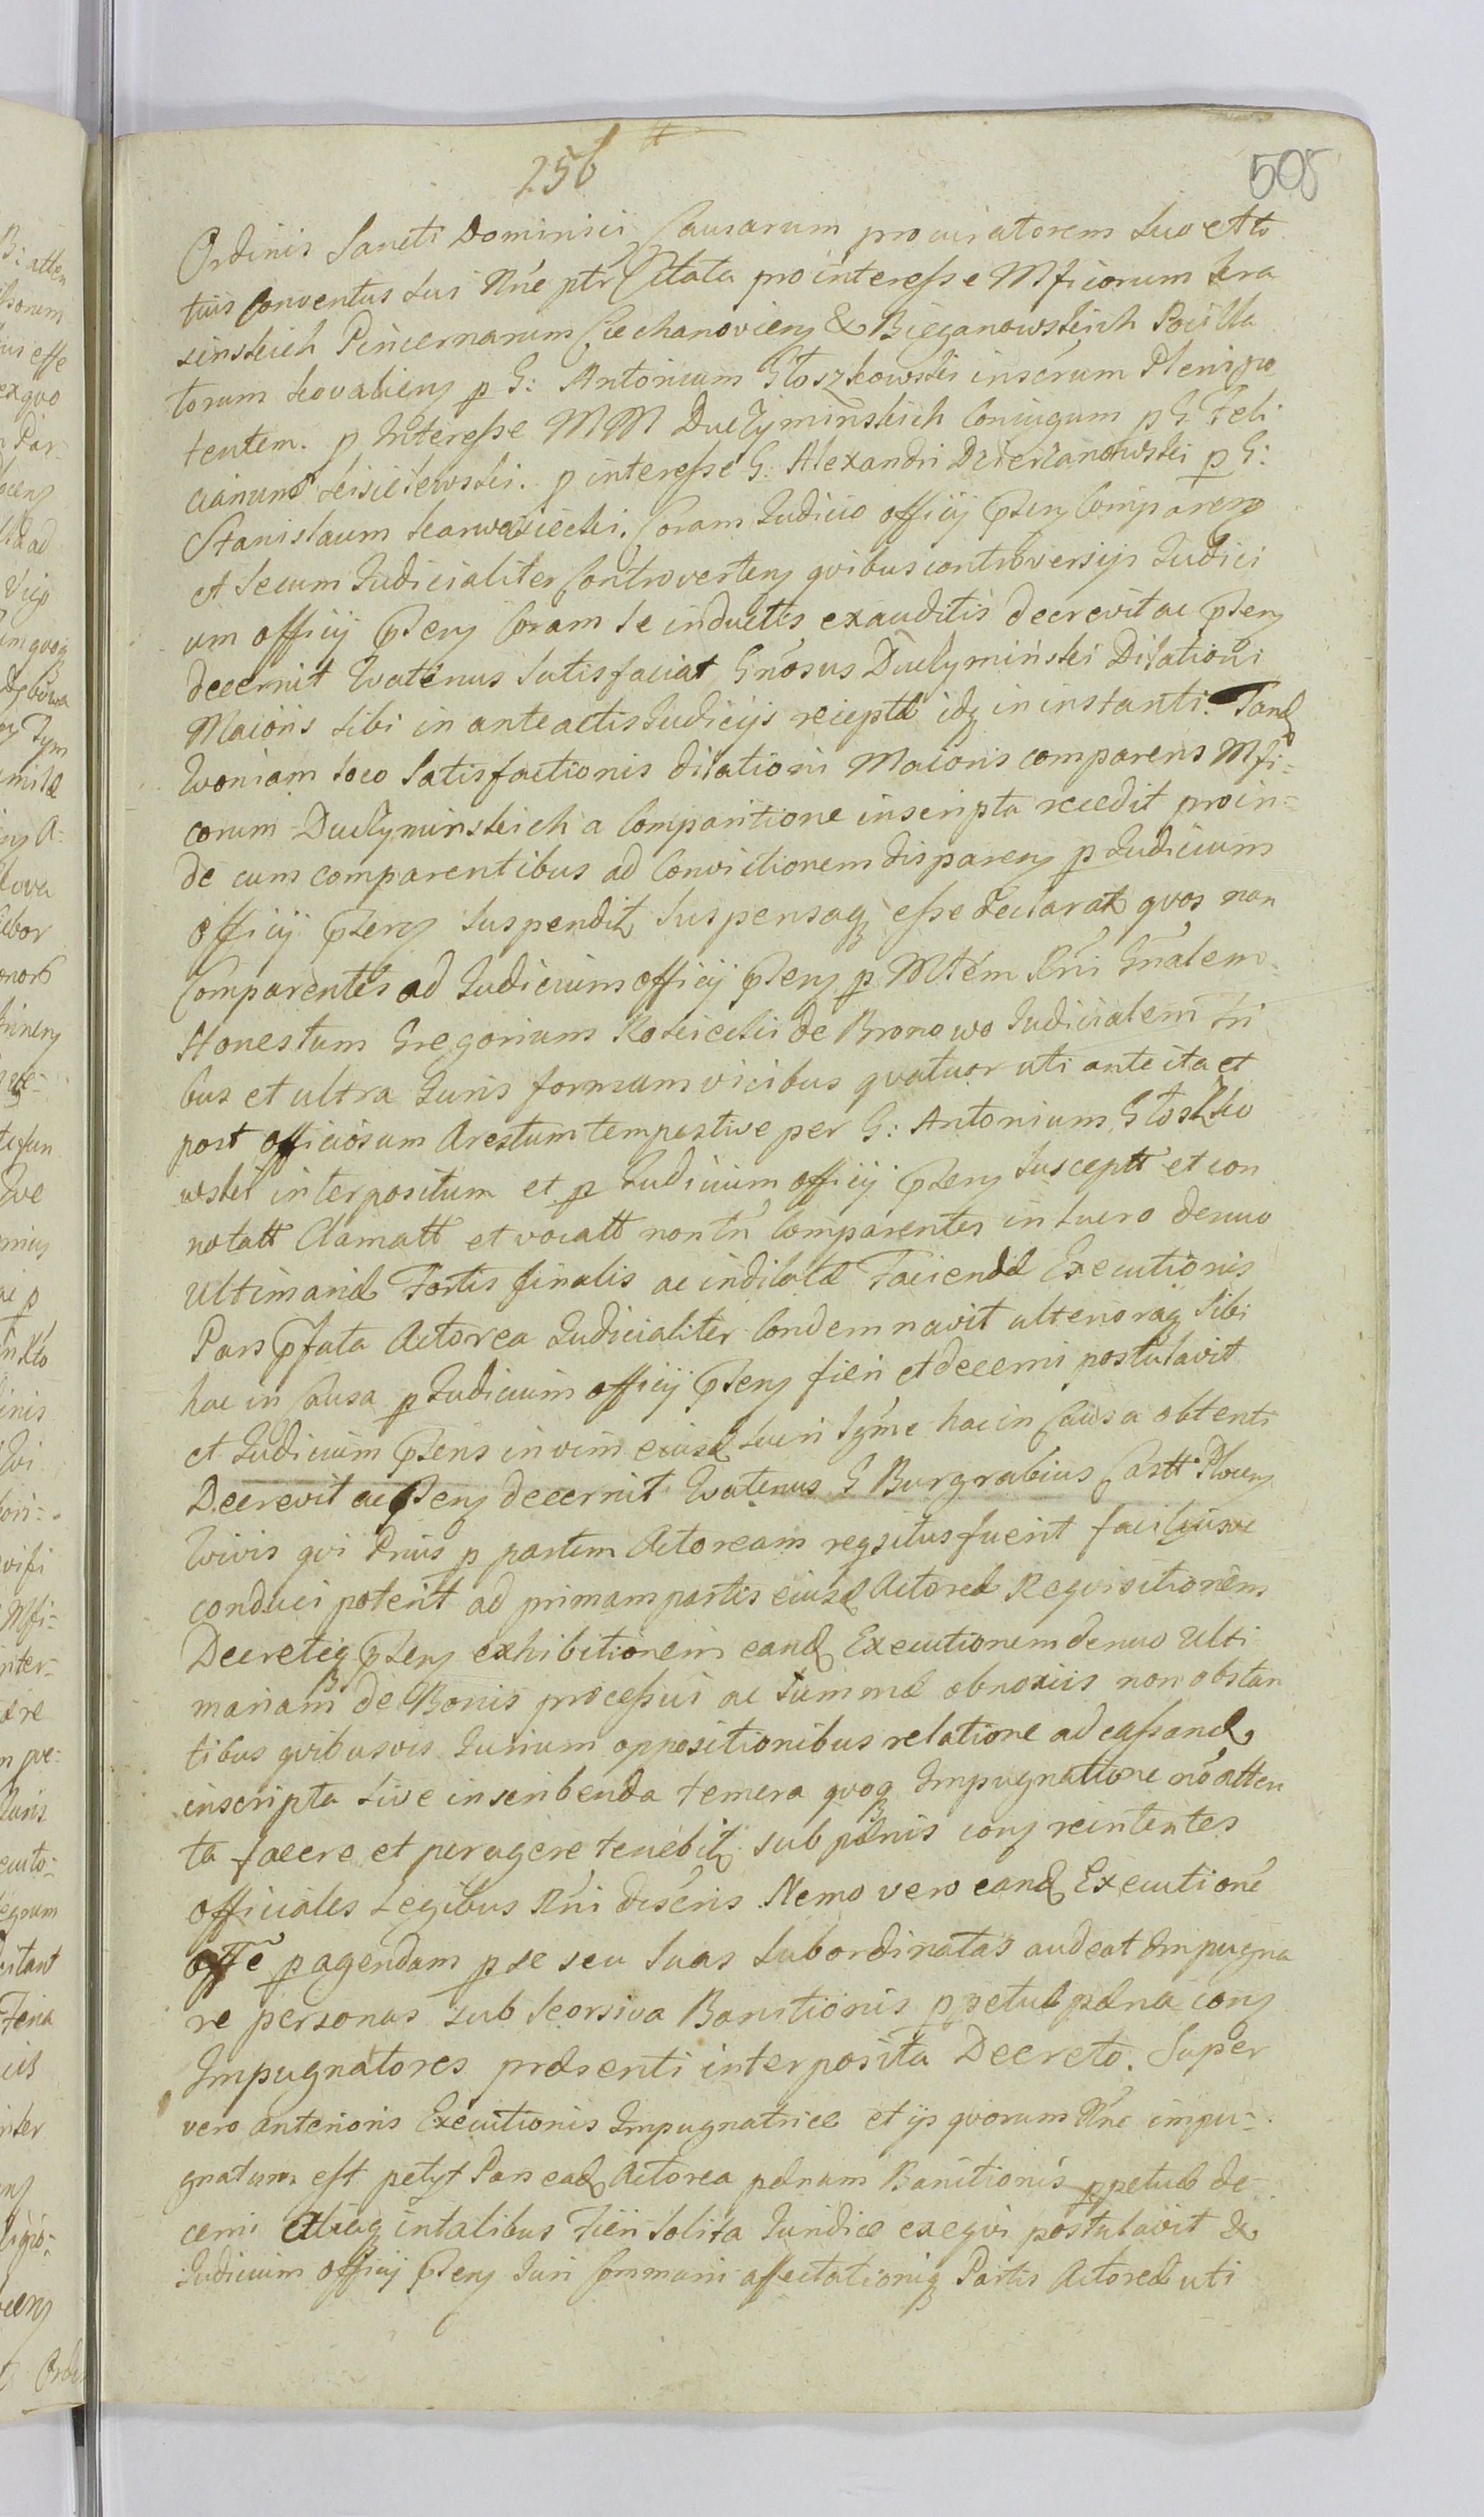 256
508
Ordinis Sancti Dominici Causarum procuratorem suo et to
tius Conventus sui Nne ptr Citata pro interesse Mficorum Kra
sinskich Pincernarum Ciechanoviens & Bieganowskich Pocilla
torum Kovaliens p G: Antonium Głoszkowski inserum Plenipo
tentem. p Interesse MM Duczyminskich Coniugum p G. Feli
cianum Kisielewski. p interesse G. Alexandri Dzierzanowski p G:
Stanislaum Karwosiecki. Coram Judicio officij Psens Comparens
et secum Judicialiter Controvertens qvibus controversijs Judici
um officij Psens Coram se inductis exauditis decrevit ac Psens
decernit Qvatenus satisfaciat Gnosus Duczyminski Dilationi
Maioris sibi in anteactis Judicijs recepta idq in instanti. Tandq
Qvoniam loco satisfactionis dilationi Maioris comparens Mfi-
corum Duczyminskich a Comparitione inscripta recedit proin-
de cum comparentibus ad Convictionem disparens p Judicium
officij Psens suspendit suspensaq esse declarat qvos non
Comparentes ad Judicium officij Psens p Mtem Rni Gnalem
Honestum Gregorium Rokicki de Bronowo Judicialem tri
bus et ultra Juris formam vicibus qvatuor uti ante ita et
post officiosum Arestum tempestive per G: Antonium Głoszko
wski interpositum et p Judicium officij Psens suscepttt et con
notatt Clamatt et vocatt non tn Comparentes in lucro denuo
Ultimariæ Fortis finalis ac indilatæ Faciendæ Executionis
Pars Pfata Actorea Judicialiter Condemnavit ulterioraq sibi
hac in Causa p Judicium officij Psens fieri et decerni postulavit
et Judicium Psens in vim eiusd lucri Igme hac in Causa obtenti
Decrevit ac Psens decernit Qvatenus G Burgrabius Castt Plocens
Qvivis qvi Prius p partem Actoream reqsitus fuerit faciliusve
conduci poterit ad primam partis eiusd Actoreæ Reqvisitionem
Decretiq Psens exhibitionem eand Executionem denuo Ulti
mariam de Bonis processui ac summæ obnoxiis non obstan
tibus qvibusvis Jurium oppositionibus relatione ad cassand
inscripta sive inscribenda temera qvoq Impugnatione no atten
ta facere et peragere tenebit sub pænis cons reintentes
officiales Legibus Rni descris Nemo vero eand Executione
offe p agendam p se seu suas subordinatas audeat Impugna
re personas sub seorsiva Banitionis ppetuæ pæna cons
Impugnatores præsenti interposita Decreto. Super
vero anterioris Executionis Impugnatrice et ijs qvorum Nne impu-
gnatum est petyt Pars ead Actorea pænam Banitionis ppetuæ de-
cerni aliaq in talibus Fieri solita Juridice exeqvi postulavit &
Judicium officij Psens Juri Communi affectationiq Partis Actoreæ uti